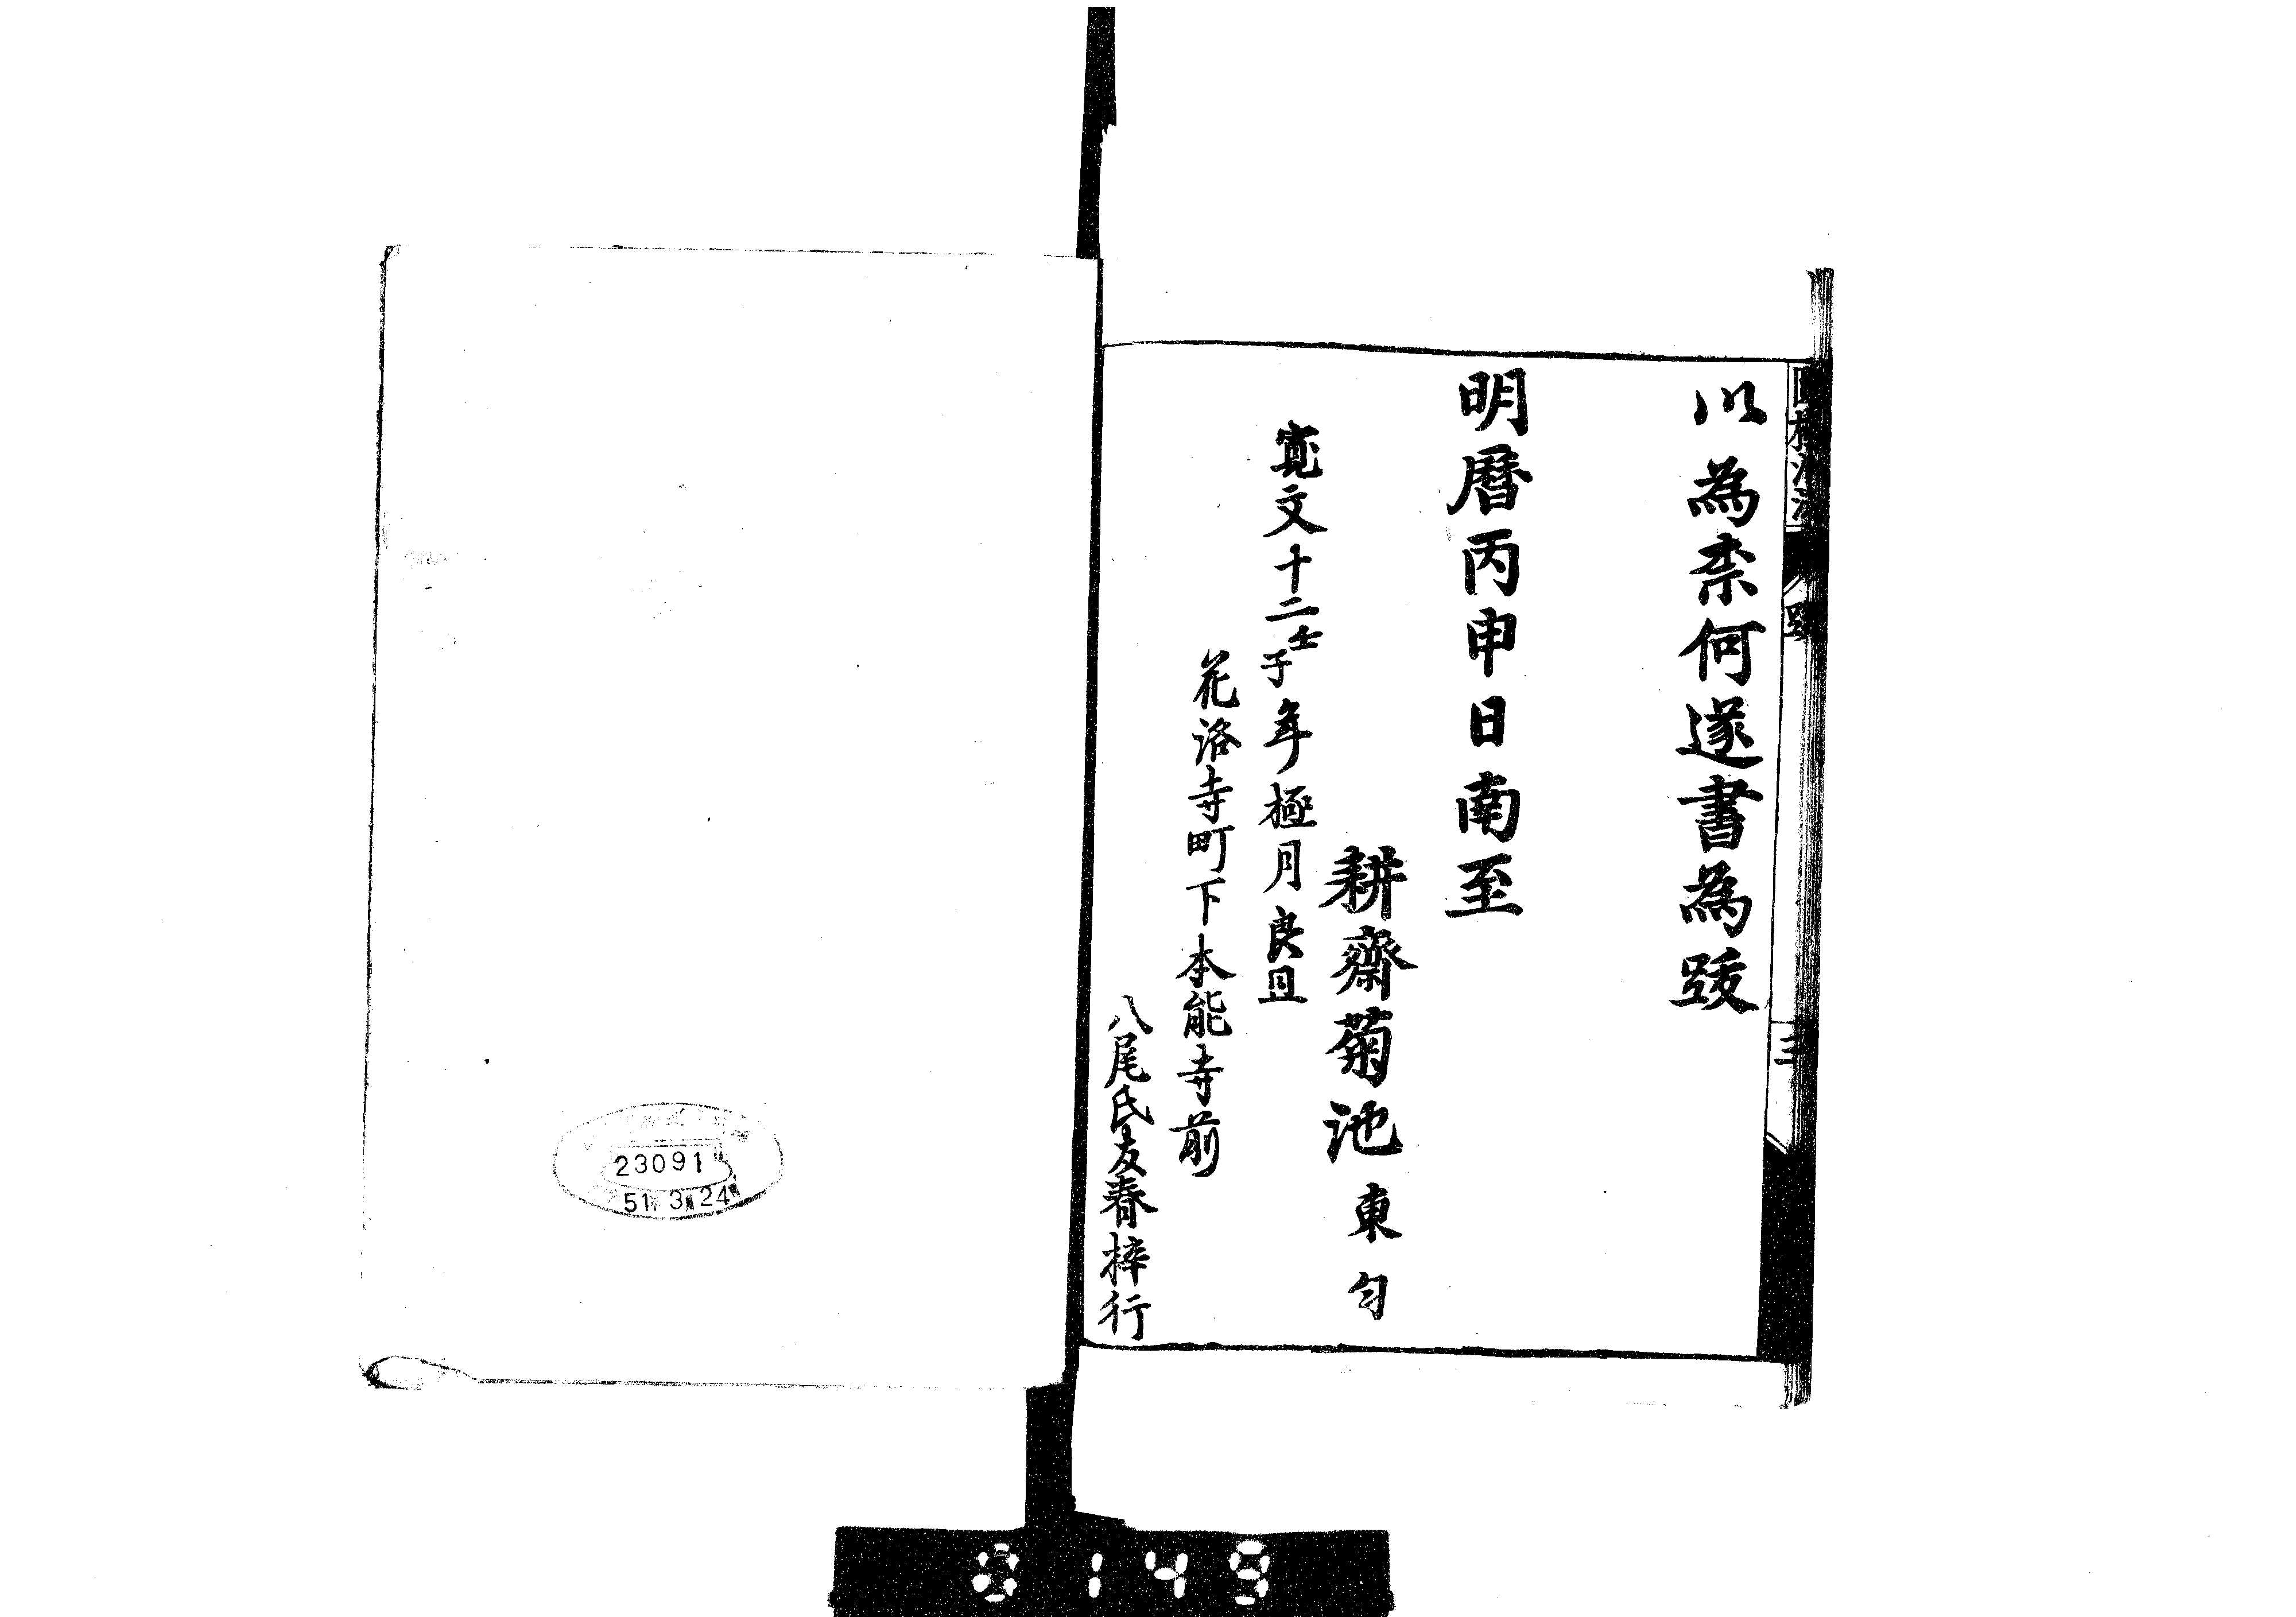 以為柰何遂書為跋
明曆丙申日南至
耕齋菊池東匀
寛文十二壬子年極月良旦
花洛寺町下本能寺前
八尾氏友春梓行
跋
三
23091
51. 3. 24
0149